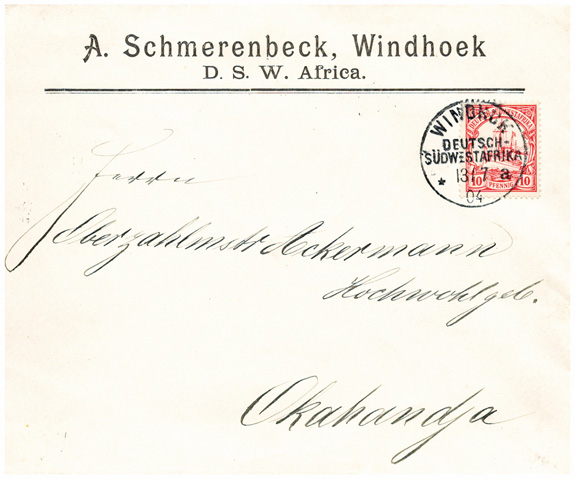 A. Schmerenbeck, Windhoek
D. S. W. Africa.
WINDHUK
DEUTSCH-
SÜDWESTAFRIKA
13/7 a
04
10 PFENNIG 10
Herrn
Oberzahlmstr Ackermann
Hochwohlgeb.
Okahandja